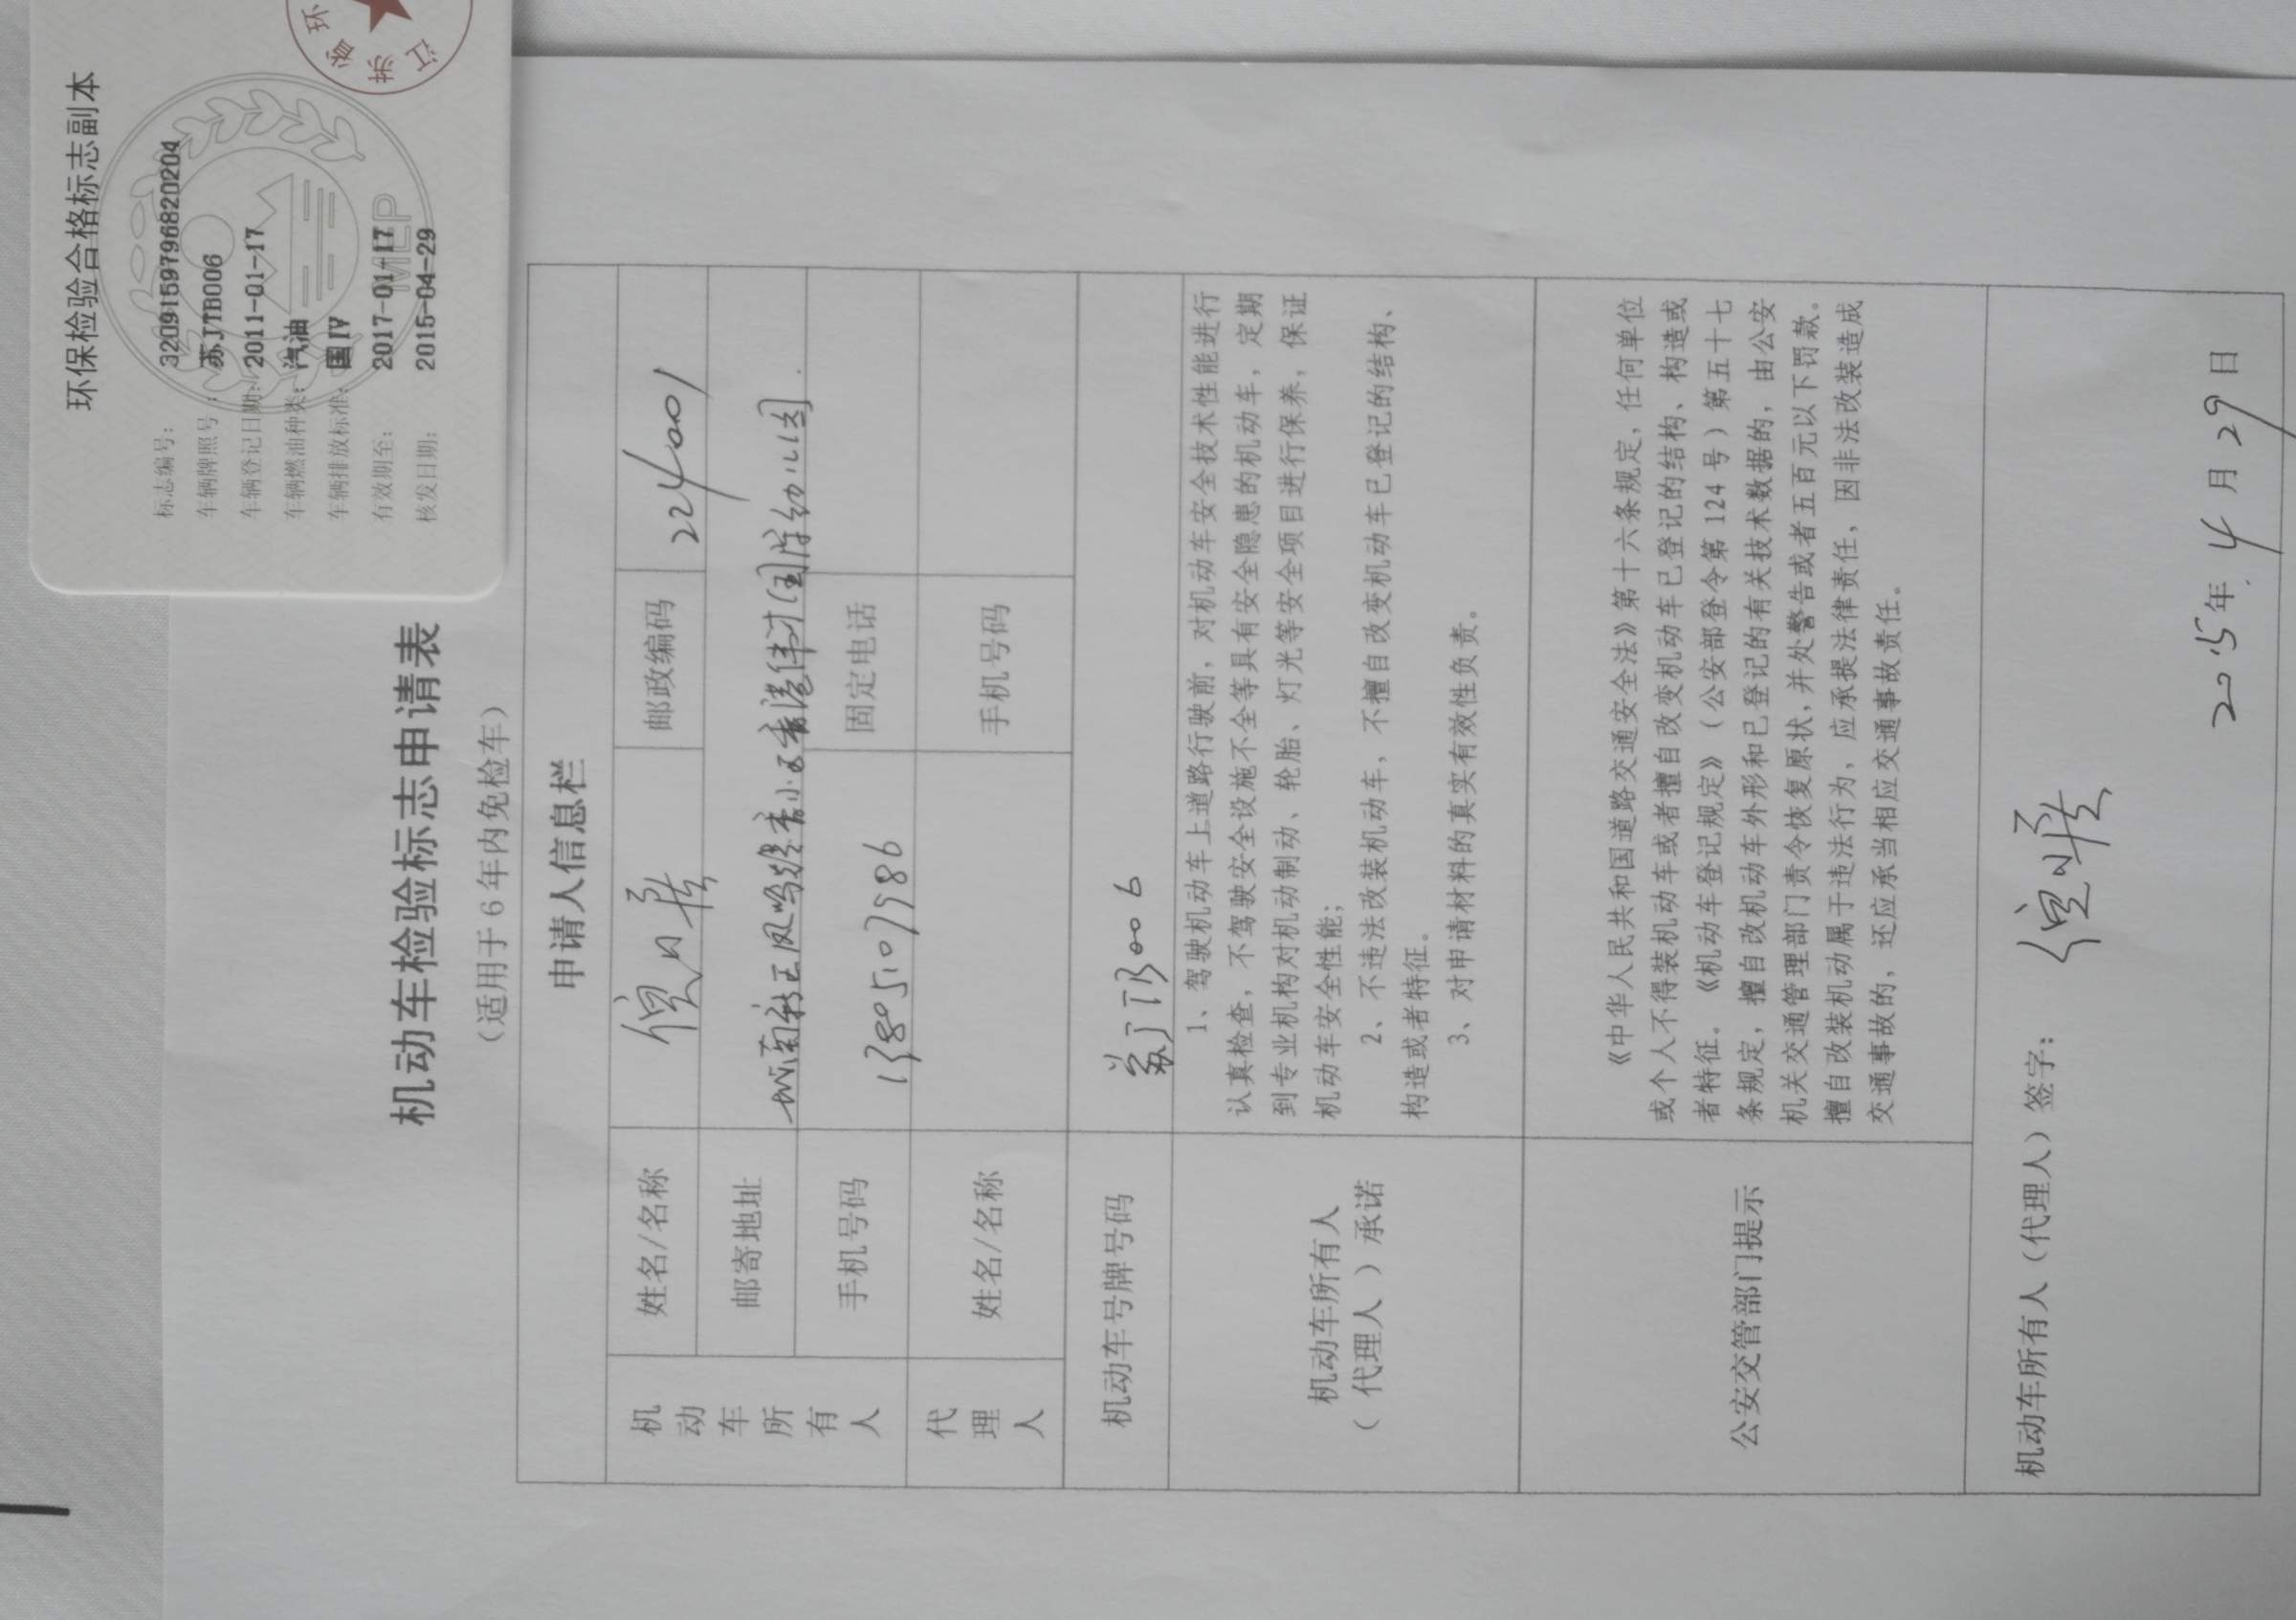 环保检验合格标志副本
标志编号: 32091597968202​04
车辆牌照号: 苏JTB006
车辆登记日期: 2011-01-17
车辆燃油种类: 汽油
车辆排放标准: 国IV
有效期至: 2017-01-17
核发日期: 2015-04-29
MEP
江苏省环
机动车检验标志申请表
（适用于6年内免检车）
申请人信息栏
机动车所有人
姓名/名称
邮政编码 224001
邮寄地址
手机号码
固定电话
代理人
姓名/名称
手机号码
机动车号牌号码 苏JTB006
机动车所有人
（代理人）承诺
1、驾驶机动车上道路行驶前，对机动车安全技术性能进行
认真检查，不驾驶安全设施不全等具有安全隐患的机动车，定期
到专业机构对机动制动、轮胎、灯光等安全项目进行保养，保证
机动车安全性能；
2、不违法改装机动车，不擅自改变机动车已登记的结构、
构造或者特征。
3、对申请材料的真实有效性负责。
公安交管部门提示
《中华人民共和国道路交通安全法》第十六条规定，任何单位
或个人不得装机动车或者擅自改变机动车已登记的结构、构造或
者特征。《机动车登记规定》（公安部登令第124号）第五十七
条规定，擅自改机动车外形和已登记的有关技术数据的，由公安
机关交通管理部门责令恢复原状，并处警告或者五百元以下罚款。
擅自改装机动属于违法行为，应承提法律责任，因非法改装造成
交通事故的，还应承当相应交通事故责任。
机动车所有人（代理人）签字：
2015年4月29日